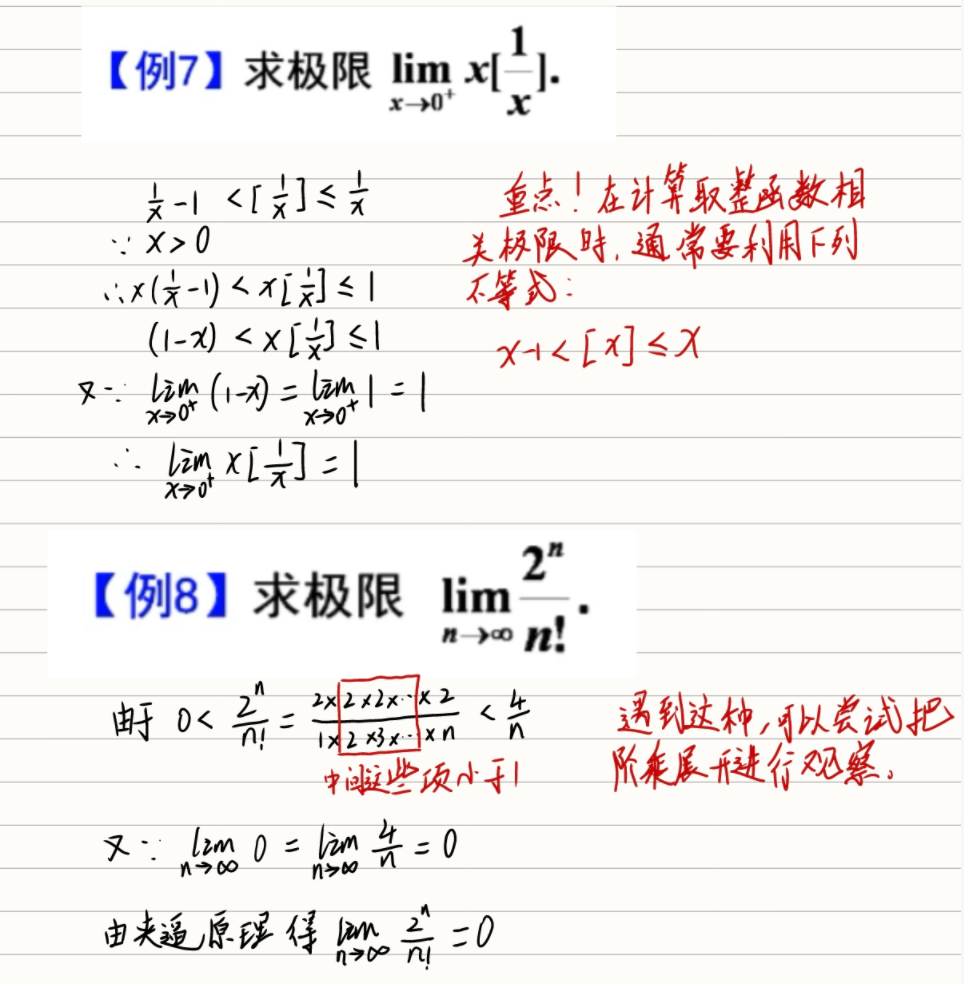 【例7】求极限 lim x→0⁺ x[1/x].
1/x -1 < [1/x] ≤ 1/x
∵ x > 0
∴ x(1/x -1) < x[1/x] ≤ 1
(1-x) < x[1/x] ≤ 1
又∵ lim x→0⁺ (1-x) = lim x→0⁺ 1 = 1
∴ lim x→0⁺ x[1/x] = 1
重点！在计算取整函数相
关极限时，通常要利用下列
不等式：
x-1 < [x] ≤ x
【例8】求极限 lim n→∞ 2ⁿ/n! .
由于 0 < 2ⁿ/n! = 2×2×2×2×…×2 / 1×2×3×…×n < 4/n
中间这些项小于1
遇到这种，可以尝试把
阶乘展开进行观察。
又∵ lim n→∞ 0 = lim n→∞ 4/n = 0
由夹逼原理得 lim n→∞ 2ⁿ/n! = 0